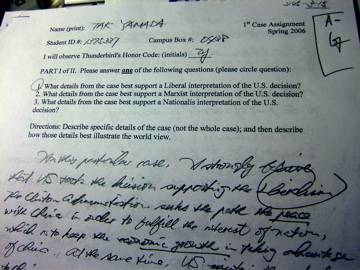 A-
Name (print): TAK YAMADA
1st Case Assignment
Student ID #:
Campus Box #:
Spring 2006
I will observe Thunderbird's Honor Code: (initials)
PART I of II. Please answer one of the following questions (please circle question):
1. What details from the case best support a Liberal interpretation of the U.S. decision?
2. What details from the case best support a Marxist interpretation of the U.S. decision?
3. What details from the case best support a Nationalis interpretation of the U.S.
decision?
Directions: Describe specific details of the case (not the whole case); and then describe
how those details best illustrate the world view.
In this particular case, I strongly believe
that US took the decision supporting the
the Clinton Administration seeks the path the peace
with China in order to fulfill the interest of nation,
which is to keep the economic growth in taking advantage
of China. At the same time, US